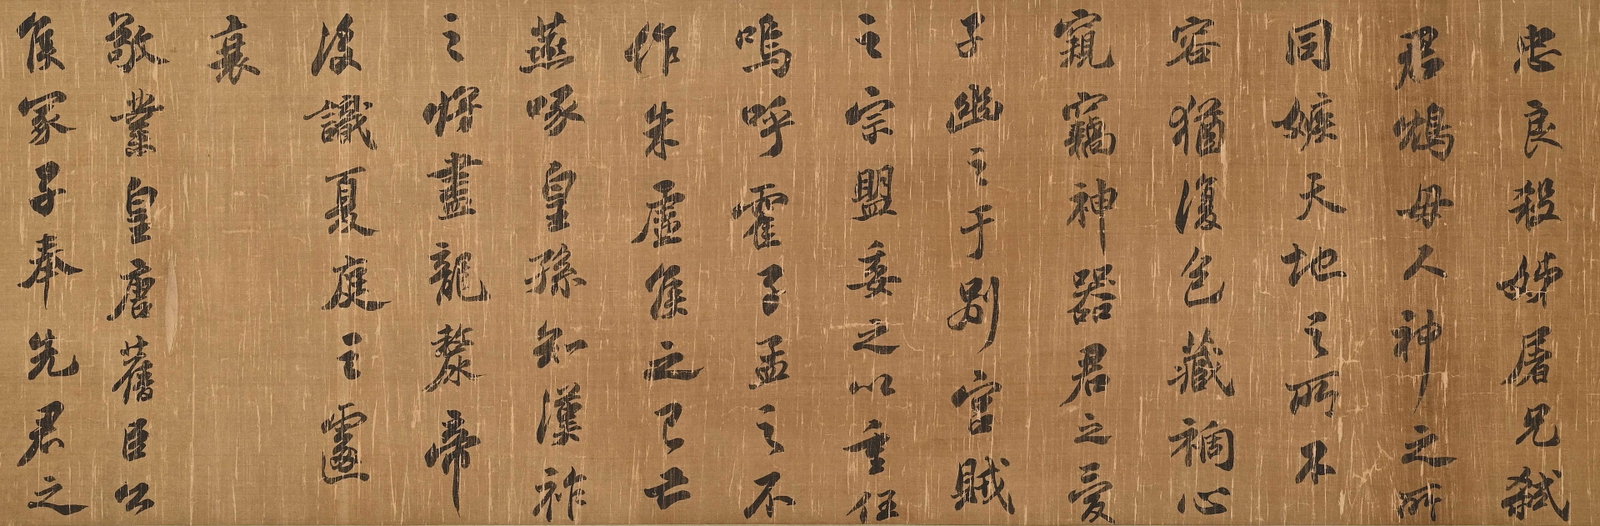 忠良殺姊屠兄弒
君鴆母人神之所
同嫉天地之所不
容猶復包藏禍心
窺竊神器君之愛
子幽之于別宮賊
之宗盟委之以重任
嗚呼霍子孟之不
作朱虛侯之已亡
燕啄皇孫知漢祚
之將盡龍漦帝
後識夏庭之遽
衰
敬業皇唐舊臣公
侯冢子奉先君之